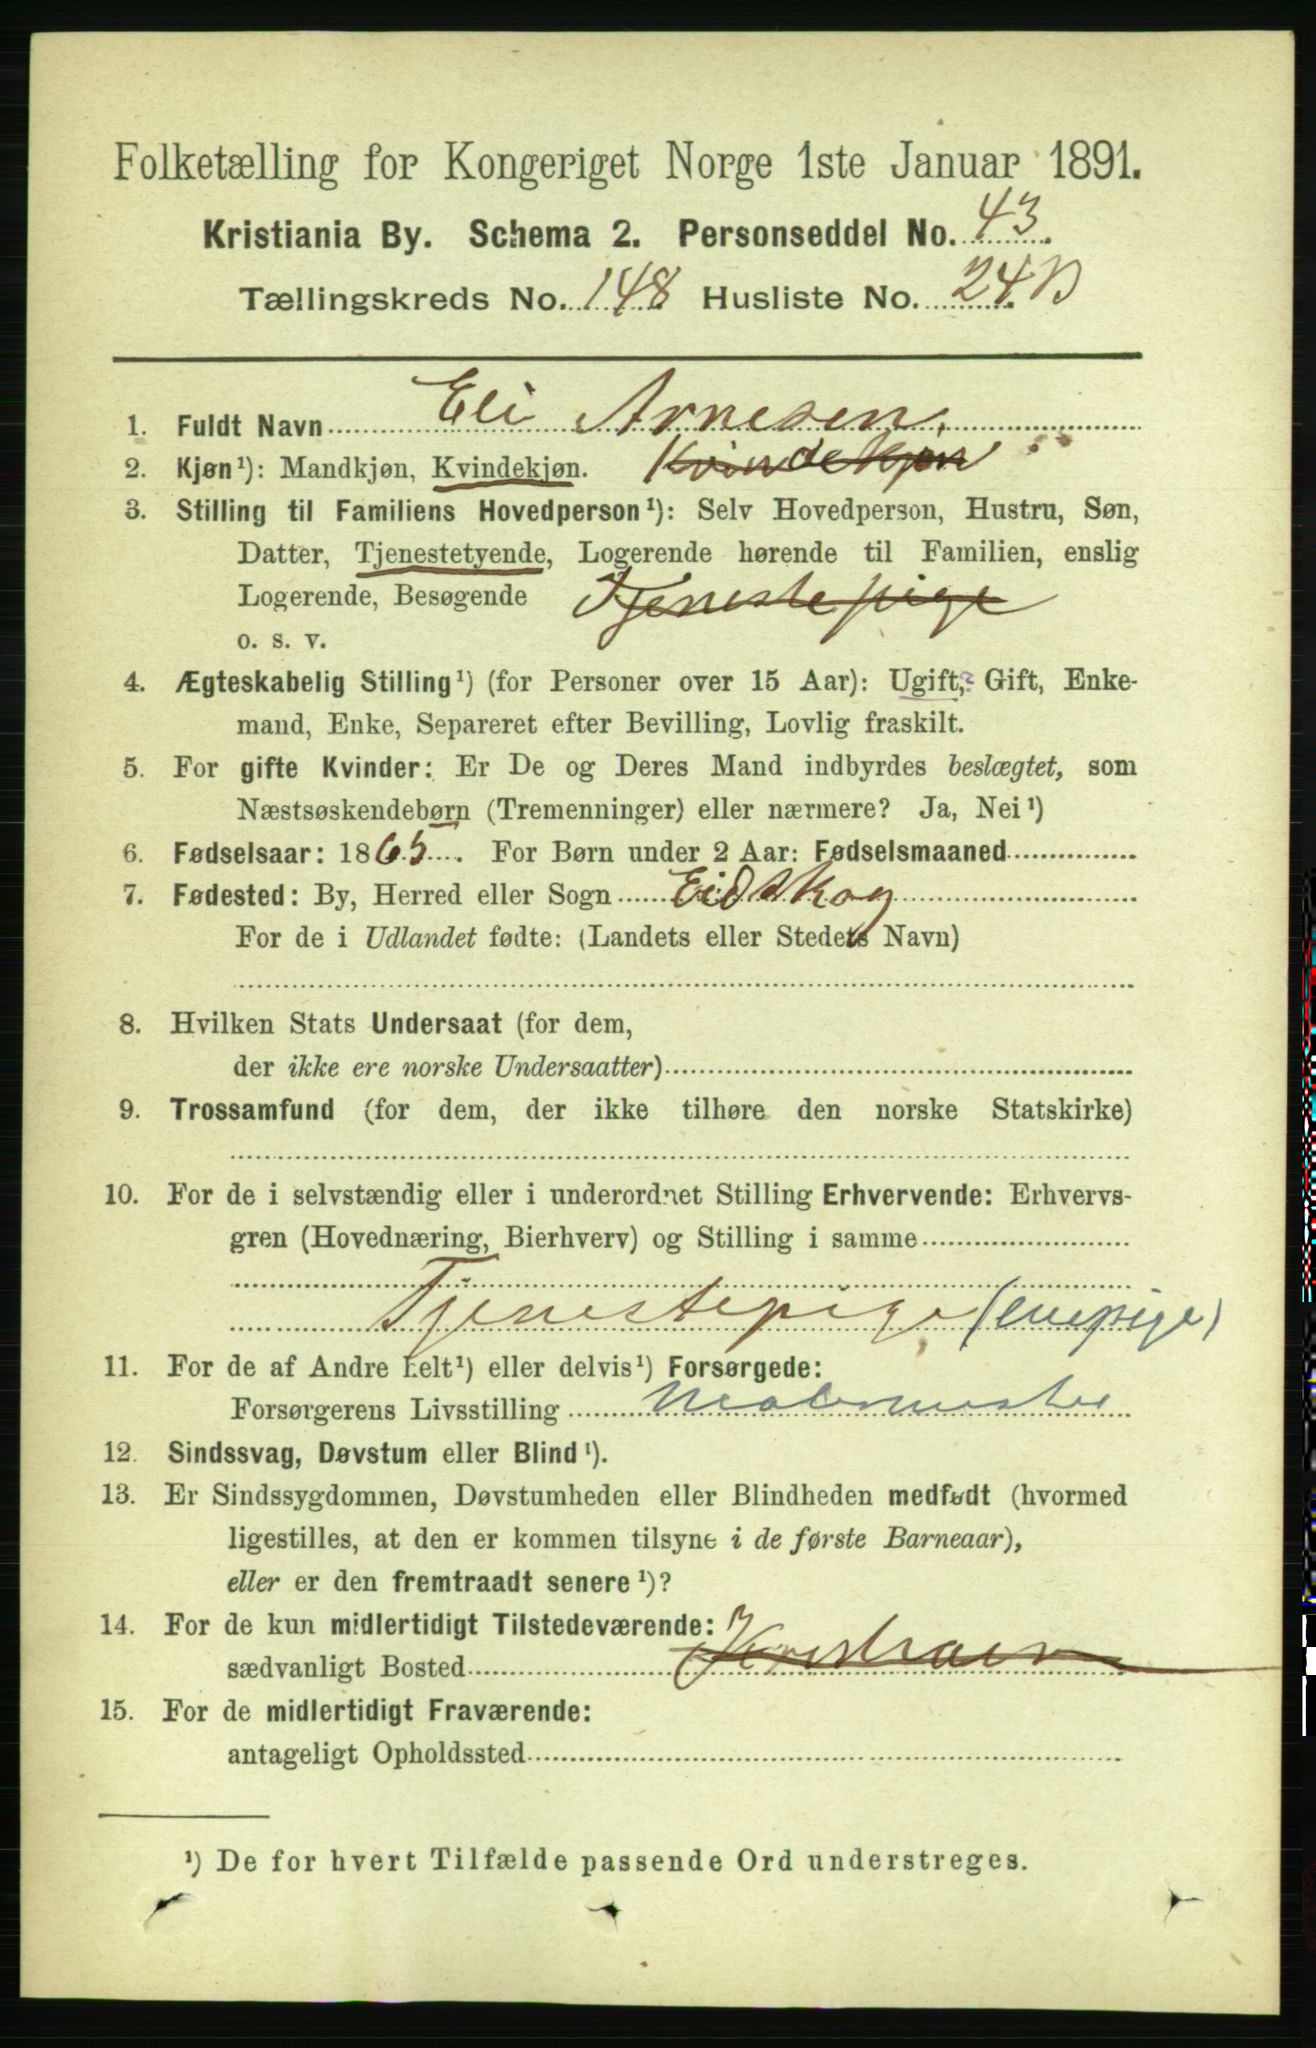 Folketælling for Kongeriget Norge 1ste Januar 1891.
Kristiania By. Schema 2. Personseddel No. 43
Tællingskreds No. 148 Husliste No. 24B
1. Fuldt Navn Eli Arnesen.
2. Kjøn¹): Mandkjøn, Kvindekjøn. Kvindekjøn
3. Stilling til Familiens Hovedperson¹): Selv Hovedperson, Hustru, Søn,
Datter, Tjenestetyende, Logerende hørende til Familien, enslig
Logerende, Besøgende Tjenestepige
o. s. v.
4. Ægteskabelig Stilling¹) (for Personer over 15 Aar): Ugift,? Gift, Enke-
mand, Enke, Separeret efter Bevilling, Lovlig fraskilt.
5. For gifte Kvinder: Er De og Deres Mand indbyrdes beslægtet, som
Næstsøskendebørn (Tremenninger) eller nærmere? Ja, Nei¹)
6. Fødselsaar: 1865. For Børn under 2 Aar: Fødselsmaaned
7. Fødested: By, Herred eller Sogn Eidskog
For de i Udlandet fødte: (Landets eller Stedets Navn)
8. Hvilken Stats Undersaat (for dem,
der ikke ere norske Undersaatter)
9. Trossamfund (for dem, der ikke tilhøre den norske Statskirke)
10. For de i selvstændig eller i underordnet Stilling Erhvervende: Erhvervs-
gren (Hovednæring, Bierhverv) og Stilling i samme
Tjenestepige (enepige)
11. For de af Andre helt¹) eller delvis¹) Forsørgede:
Forsørgerens Livsstilling Malermester
12. Sindssvag, Døvstum eller Blind¹).
13. Er Sindssygdommen, Døvstumheden eller Blindheden medfødt (hvormed
ligestilles, at den er kommen tilsyne i de første Barneaar),
eller er den fremtraadt senere¹)?
14. For de kun midlertidigt Tilstedeværende:
sædvanligt Bosted
15. For de midlertidigt Fraværende:
antageligt Opholdssted
¹) De for hvert Tilfælde passende Ord understreges.